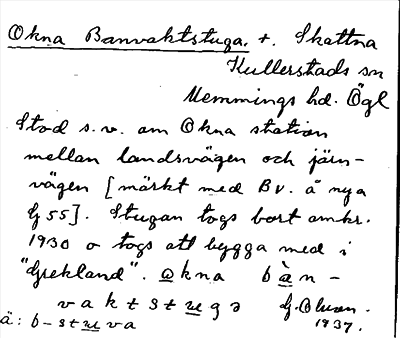 Okna Banvaktstuga. t. Skattna
Kullerstads sn
Memmings hd. Ögl
Stod s.v. om Okna station
mellan landsvägen och järn-
vägen [märkt med Bv. å nya
G 55]. Stugan togs bort omkr.
1930 o togs att bygga med i
"Grekland". Okna bàn-
vaktstugə G. Olson.
ä: b-stuva 1937.